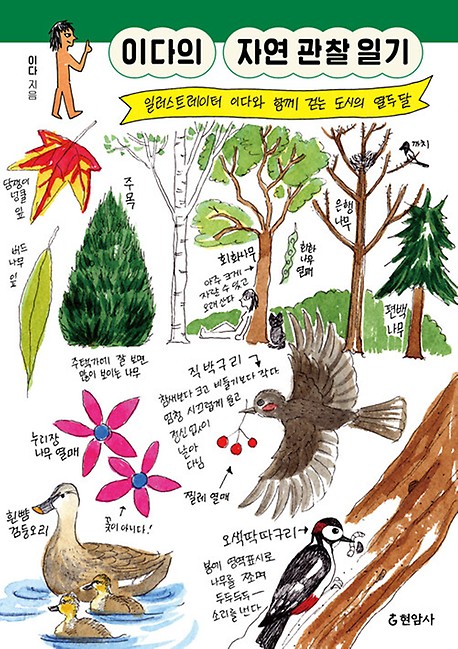 이다의 자연 관찰 일기
이다 지음
일러스트레이터 이다와 함께 걷는 도시의 열두 달
까치
담쟁이
덩굴
잎
주목
은행
나무
회화나무
회화
나무
열매
아주 크게
자랄 수 있고
오래 산다
버드
나무
잎
편백
나무
주택가에 잘 보면
많이 보이는 나무
직박구리
참새보다 크고 비둘기보다 작다
엄청 시끄럽게 울고
정신없이
날아
다님
누리장
나무 열매
꽃이 아니다!
찔레 열매
흰뺨
검둥오리
오색딱따구리
봄에 영역표시로
나무를 쪼며
두두두두
소리를 낸다
현암사